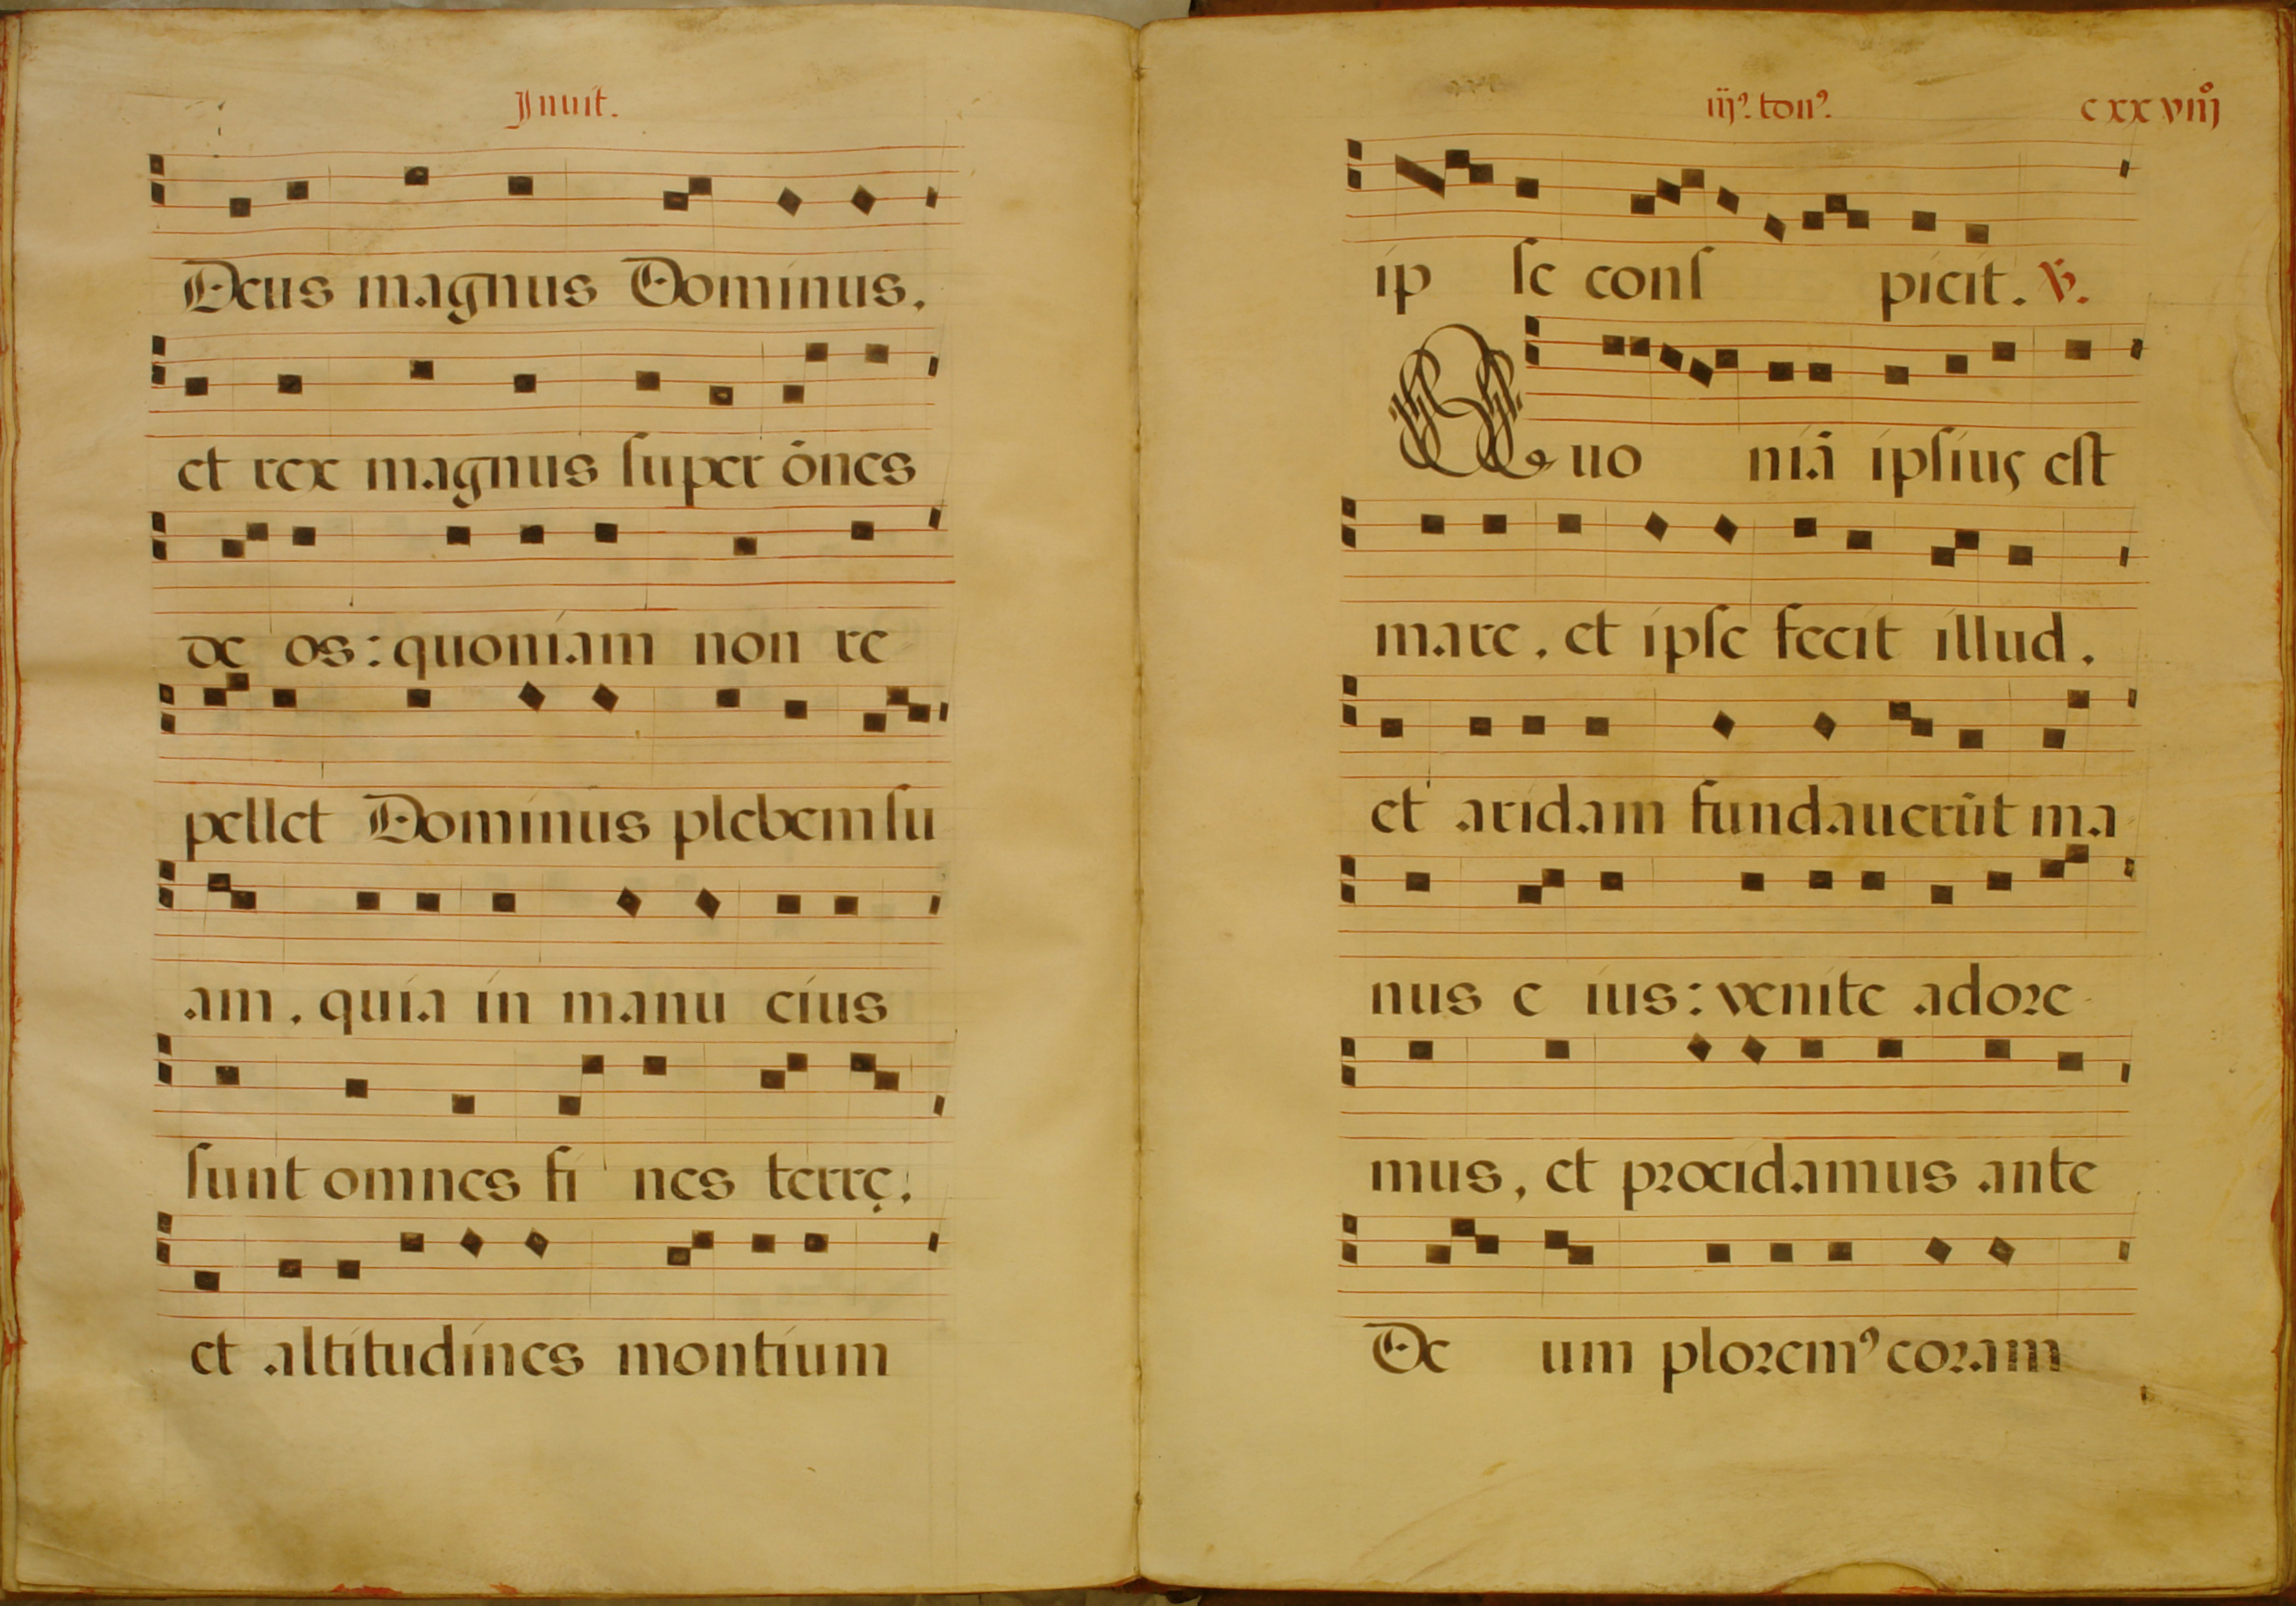 Jnuit.
Deus magnus Dominus.
et rex magnus super õnes
de os: quoniam non re
pellet Dominus plebem su
am. quia in manu eius
sunt omnes fi nes terrę:
et altitudines montium
iij⁹. ton⁹. cxxviiij
ip se cons picit. ℣.
Quo niã ipsius est
mare. et ipse fecit illud.
et aridam fundauerũt ma
nus e ius: venite adore
mus, et procidamus ante
De um plorem⁹ coram